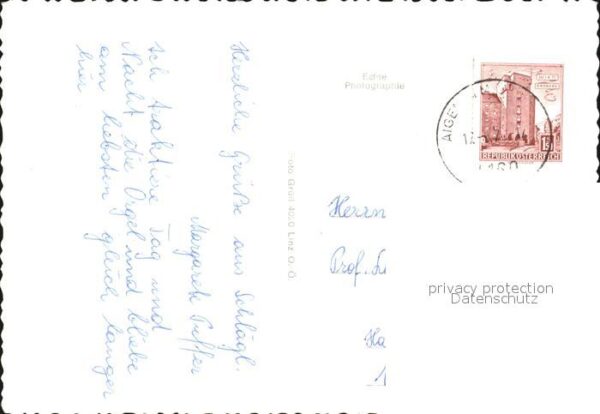 Herzliche Grüße aus Schlägl.
Margarete
Ich traktiere Tag und
Nacht die Orgel und bliebe
am liebsten gleich länger
hier
Echte
Photographie
Foto Groß 4020 Linz O. Ö.
AIGEN
REPUBLIK ÖSTERREICH
Herrn
Prof.
privacy protection
Datenschutz